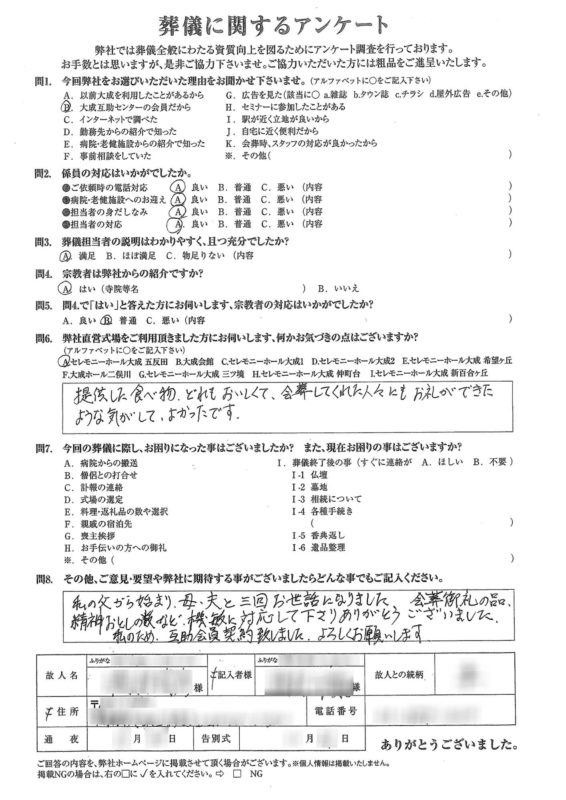 葬儀に関するアンケート
弊社では葬儀全般にわたる資質向上を図るためにアンケート調査を行っております。
お手数とは思いますが、是非ご協力下さいませ。ご協力いただいた方には粗品をご進呈いたします。
問1. 今回弊社をお選びいただいた理由をお聞かせ下さいませ。(アルファベットに○をご記入下さい)
A. 以前大成を利用したことがあるから G. 広告を見た(該当に○ a.雑誌 b.タウン誌 c.チラシ d.屋外広告 e.その他)
B. 大成互助センターの会員だから H. セミナーに参加したことがある
C. インターネットで調べた I. 駅が近く立地が良いから
D. 勤務先からの紹介で知った J. 自宅に近く便利だから
E. 病院・老健施設からの紹介で知った K. 会葬時、スタッフの対応が良かったから
F. 事前相談をしていた ※. その他( )
問2. 係員の対応はいかがでしたか。
●ご依頼時の電話対応 A. 良い B. 普通 C. 悪い (内容 )
●病院・老健施設へのお迎え A. 良い B. 普通 C. 悪い (内容 )
●担当者の身だしなみ A. 良い B. 普通 C. 悪い (内容 )
●担当者の対応 A. 良い B. 普通 C. 悪い (内容 )
問3. 葬儀担当者の説明はわかりやすく、且つ充分でしたか?
A. 満足 B. ほぼ満足 C. 物足りない (内容 )
問4. 宗教者は弊社からの紹介ですか?
A. はい (寺院等名 ) B. いいえ
問5. 問4.で「はい」と答えた方にお伺いします、宗教者の対応はいかがでしたか?
A. 良い B. 普通 C. 悪い (内容 )
問6. 弊社直営式場をご利用頂きました方にお伺いします、何かお気づきの点はございますか?
(アルファベットに○をご記入下さい)
A.セレモニーホール大成 五反田 B.大成会館 C.セレモニーホール大成1 D.セレモニーホール大成2 E.セレモニーホール大成 希望ヶ丘
F.大成ホール二俣川 G.セレモニーホール大成 三ツ境 H.セレモニーホール大成 仲町台 I.セレモニーホール大成 新百合ヶ丘
提供した食べ物、どれもおいしくて、会葬してくれた人々にもお礼ができた
ような気がして、よかったです。
問7. 今回の葬儀に際し、お困りになった事はございましたか? また、現在お困りの事はございますか?
A. 病院からの搬送 I. 葬儀終了後の事 (すぐに連絡が A. ほしい B. 不要 )
B. 僧侶との打合せ I-1 仏壇
C. 訃報の連絡 I-2 墓地
D. 式場の選定 I-3 相続について
E. 料理・返礼品の数や選択 I-4 各種手続き
F. 親戚の宿泊先 ( )
G. 喪主挨拶 I-5 香典返し
H. お手伝いの方への御礼 I-6 遺品整理
※. その他 ( )
問8. その他、ご意見・要望や弊社に期待する事がございましたらどんな事でもご記入ください。
私の父から始まり、母・夫と三回お世話になりました。 会葬御礼の品、
精神おとしの数など、機敏に対応して下さりありがとうございました。
私のため、互助会員契約致しました。よろしくお願いします
ふりがな ふりがな
故人名 様 ご記入者様 様 故人との続柄
ご住所 〒 電話番号
通夜 月 日 告別式 月 日
ありがとうございました。
ご回答の内容を、弊社ホームページに掲載させて頂く場合がございます。※個人情報は掲載いたしません。
掲載NGの場合は、右の□に✓を入れてください。⇨ □ NG